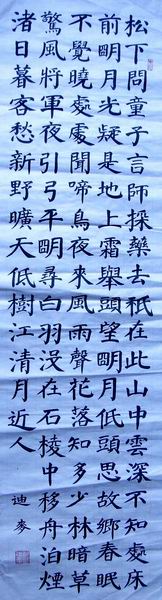 松下問童子言師採藥去祇在此山中雲深不知處床
前明月光疑是地上霜舉頭望明月低頭思故鄉春眠
不覺曉處處聞啼鳥夜來風雨聲花落知多少林暗草
驚風將軍夜引弓平明尋白羽没在石棱中移舟泊煙
渚日暮客愁新野曠天低樹江清月近人
迪麥